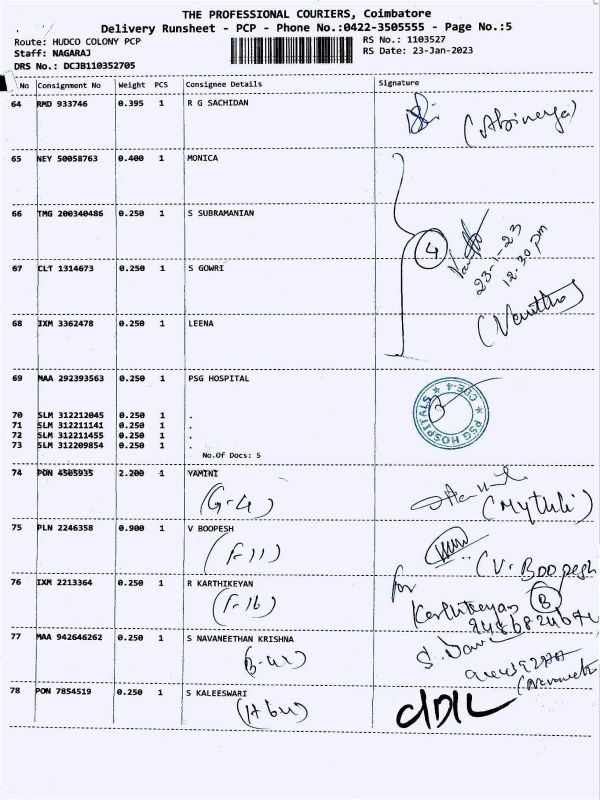 THE PROFESSIONAL COURIERS, Coimbatore
Delivery Runsheet - PCP - Phone No.:0422-3505555 - Page No.:5
Route: HUDCO COLONY PCP
RS No.: 1103527
Staff: NAGARAJ
RS Date: 23-Jan-2023
DRS No.: DCJB110352705
No Consignment No Weight PCS Consignee Details Signature
64 RMD 933746 0.395 1 R G SACHIDAN
(Abinaya)
65 NEY 50058763 0.400 1 MONICA
66 TMG 200340486 0.250 1 S SUBRAMANIAN
4
23-1-23
12.30 pm
67 CLT 1314673 0.250 1 S GOWRI
(Vanitha)
68 IXM 3362478 0.250 1 LEENA
69 MAA 292393563 0.250 1 PSG HOSPITAL
★ PSG HOSPITALS ★ CBE-4
70 SLM 312212045 0.250 1 .
71 SLM 312211141 0.250 1 .
72 SLM 312211455 0.250 1 .
73 SLM 312209854 0.250 1 .
No.Of Docs: 5
74 PON 4505935 2.200 1 YAMINI
(G-4)
(Mythili)
75 PLN 2246358 0.900 1 V BOOPESH
(F-11)
(V. Boopesh
76 IXM 2213364 0.250 1 R KARTHIKEYAN
(F-16)
for
Karthikeyan B
77 MAA 942646262 0.250 1 S NAVANEETHAN KRISHNA
78 PON 7854519 0.250 1 S KALEESWARI